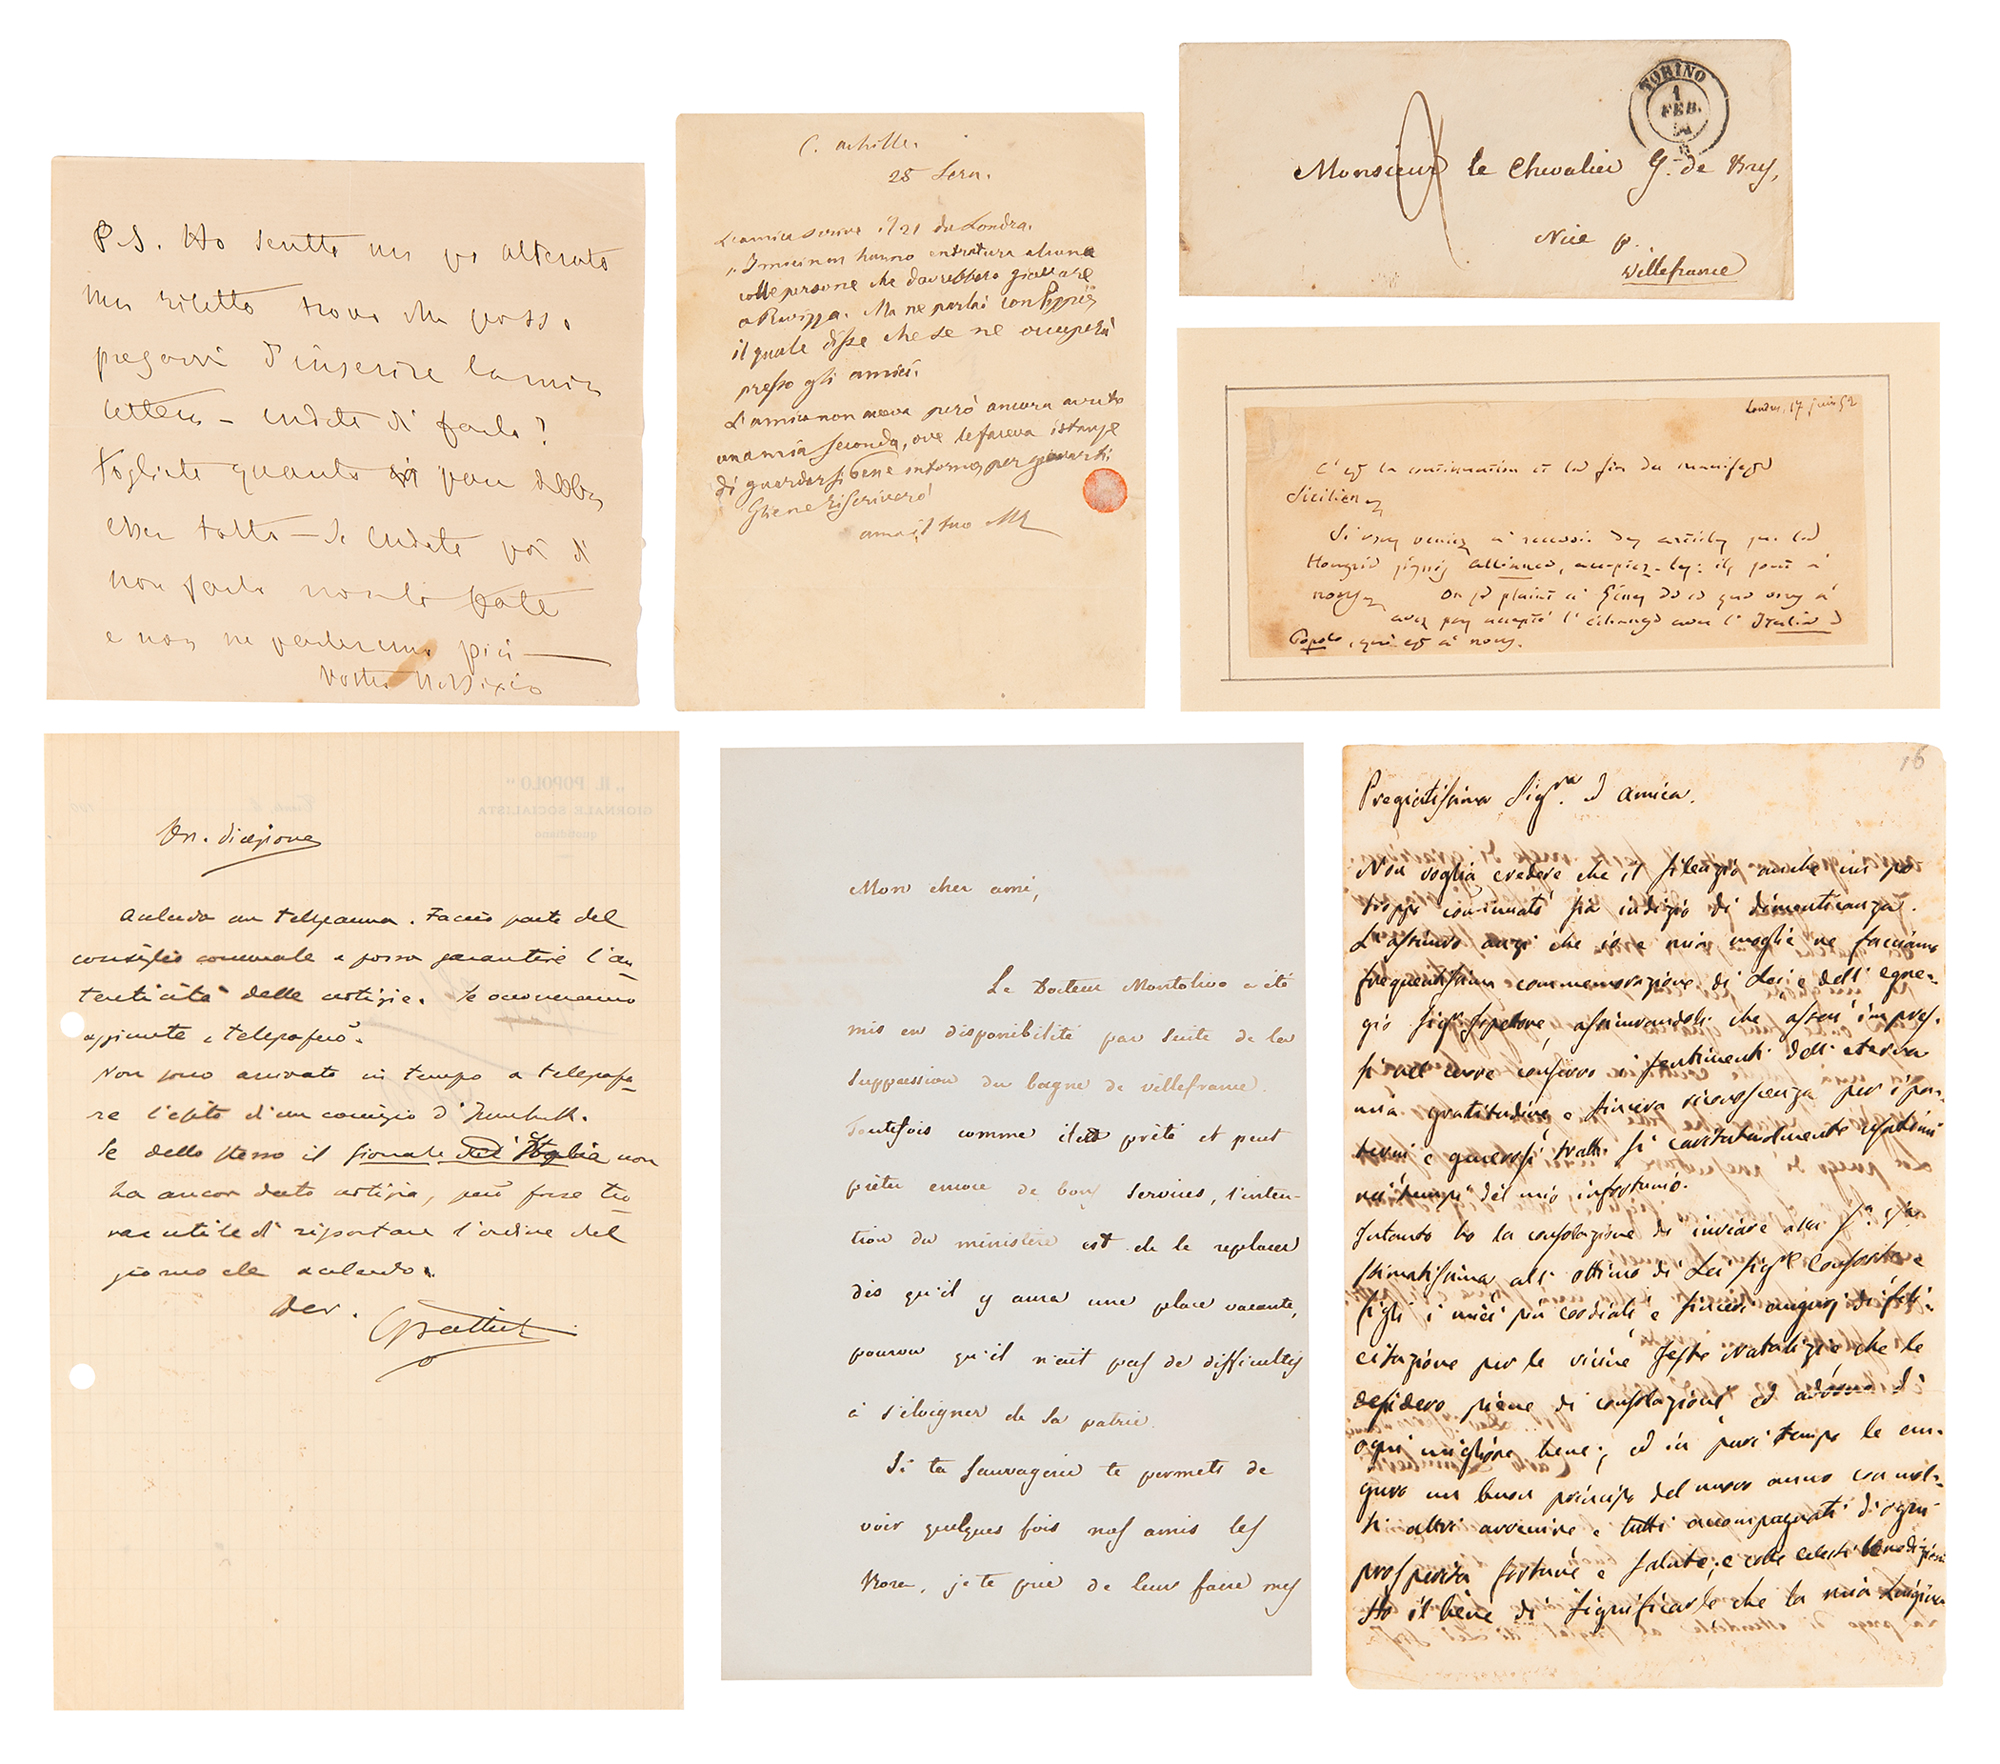 P.S. Ho scritto un po' alterato
ma riletto trovo che posso
pregarvi d'inserire la mia
lettera – credete di farlo?
Togliete quanto vi pare debba
esser tolto – Se credete poi di
non farlo
e non ne parleremo più
Vostro N. Bixio
C. Achille.
28 Sera.
L'amica scrive il 21 da Londra.
"I miei non hanno entratura alcuna
colle persone che dovrebbero giovare
a Ravizza. Ma ne parlai con
il quale disse che se ne occuperà
presso gli amici.
L'amica non aveva però ancora avuto
una mia seconda, ove le faceva istanze
di guardarsi bene intorno, per giovarti.
Gliene riscriverò
ama il tuo
TORINO
1
FEB.
Monsieur le Chevalier G. de Brej,
Nice p.
Villefranche
Londres, 17 juin 52
C'est la continuation et la fin du manifeste
Sicilien
Si vous veniez à recevoir des articles par la
Hongrie signés Alliance, acceptez-les: ils sont à
nous. On se plaint à Gênes de ce que vous n'
avez pas accepté l'échange avec l'Italia e
Popolo, qui est à nous.
"IL POPOLO"
GIORNALE SOCIALISTA
quotidiano
On. direzione
Accludo un telegramma. Faccio parte del
consiglio comunale e posso garantire l'au-
tenticità delle notizie. Se occorreranno
aggiunte telegraferò.
Non sono arrivato in tempo a telegrafa-
re l'esito d'un comizio d'Innsbruck.
Se dello stesso il giornale d'Italia non
ha ancor dato notizia, può forse tro
var utile di riportare l'ordine del
giorno che accludo.
dev. CBattisti
Mon cher ami,
Le Docteur Montolivo a été
mis en disponibilité par suite de la
suppression du bagne de Villefranche.
Toutefois comme il a prêté et peut
prêter encore de bons services, l'inten-
tion du ministère est de le replacer
dès qu'il y aura une place vacante,
pourvu qu'il n'ait pas de difficultés
à s'éloigner de sa patrie.
Si ta sauvagerie te permets de
voir quelques fois nos amis les
je te prie de leur faire mes
16
Pregiatissima Sig.ra ed Amica.
Non voglia credere che il silenzio anche un po'
troppo continuato sia indizio di dimenticanza.
L'assicuro anzi che io e mia moglie ne facciamo
frequentissima commemorazione di Lei e dell'egre-
gio Sig.r assicurandoli che assai impres-
si nel cuore conservo i sentimenti dell'eterna
mia gratitudine, e sincera riconoscenza per i
e generosi tratti sì caritatevolmente
nei tempi del mio infortunio.
Intanto ho la consolazione di inviare alla S.a V.a
stimatissima all'ottimo di Lei Sig.r Consorte e
figli i miei più cordiali e sinceri auguri di feli-
citazione per le vicine feste Natalizie che le
desidero piene di consolazioni ed adorne di
ogni miglior bene; ed in pari tempo le au-
guro un buon principio del nuovo anno con mol-
ti altri avvenire e tutti accompagnati di ogni
prosperità fortune e salute, e colle celesti benedizioni
Ho il bene di significarle che la mia Luigina